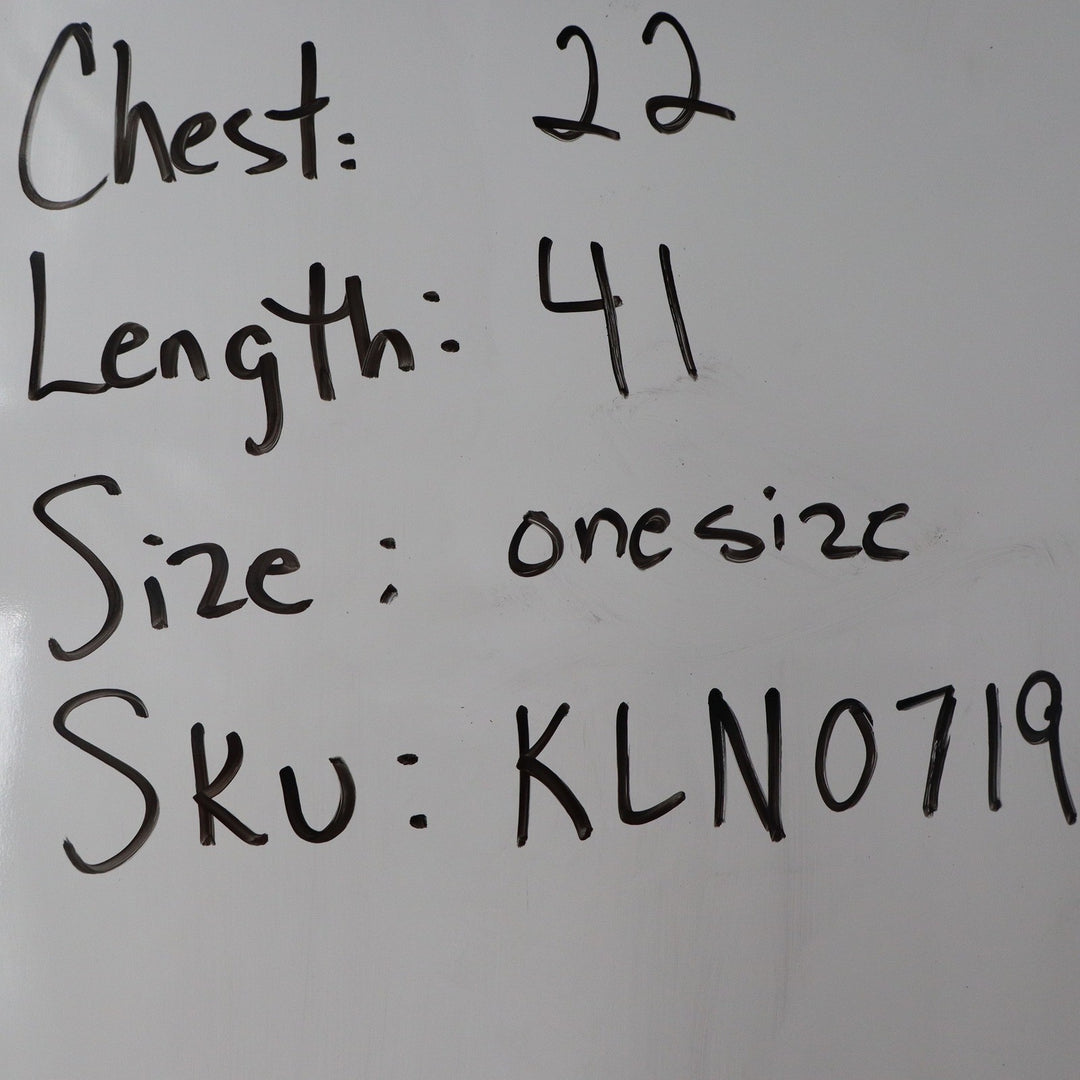 Chest: 22
Length: 41
Size: one size
Sku: KLN0719